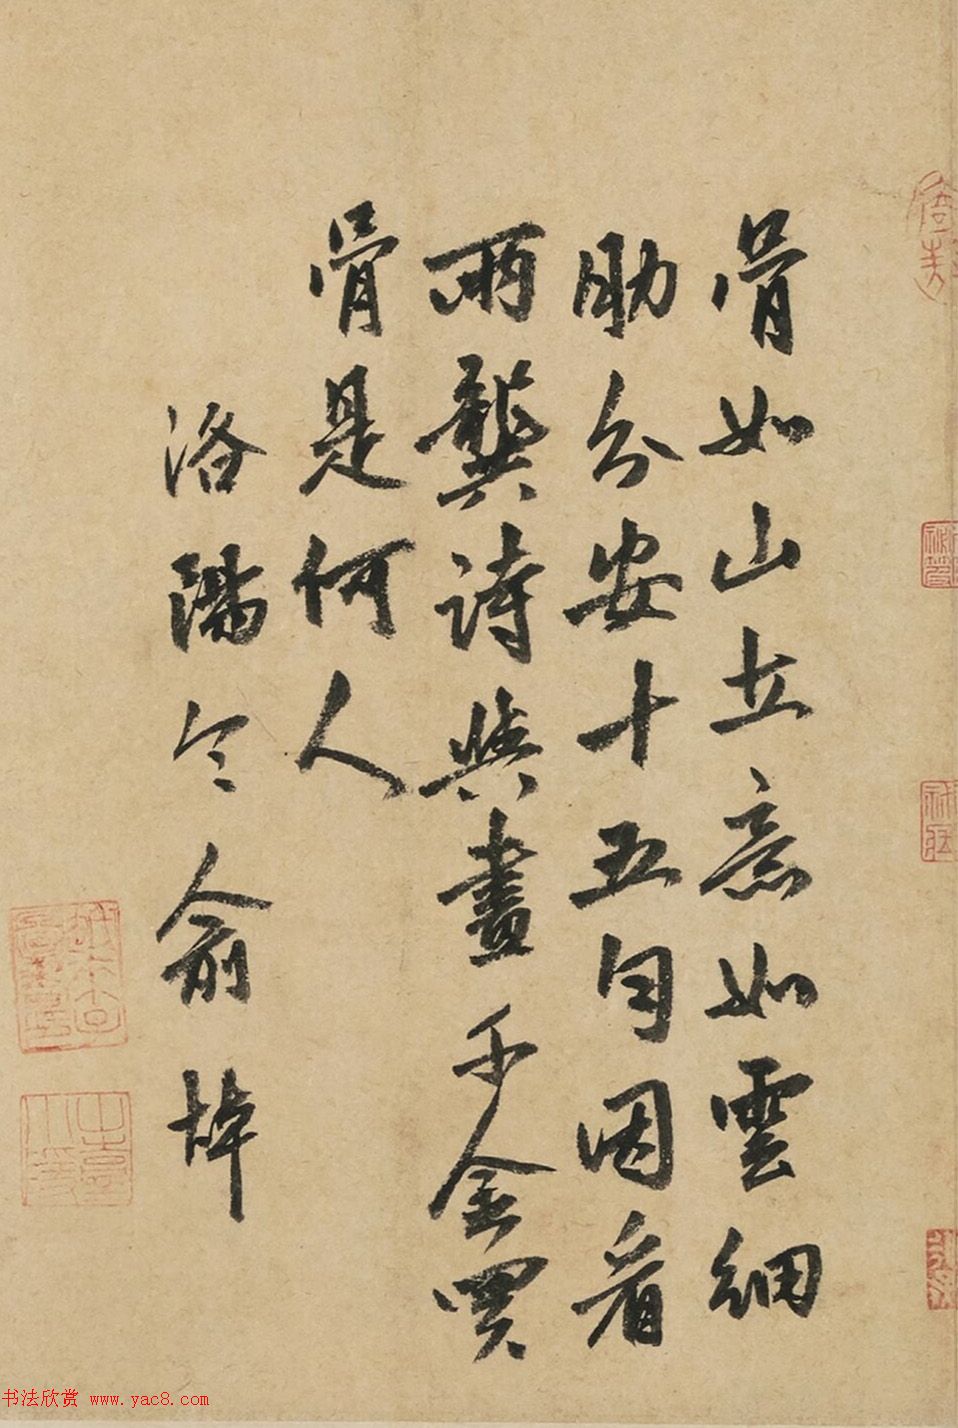 骨如山立意如雲細
肋分安十五匀因看
兩龔詩與畫千金買
骨是何人
洛陽令俞焯
书法欣赏 www.yac8.com